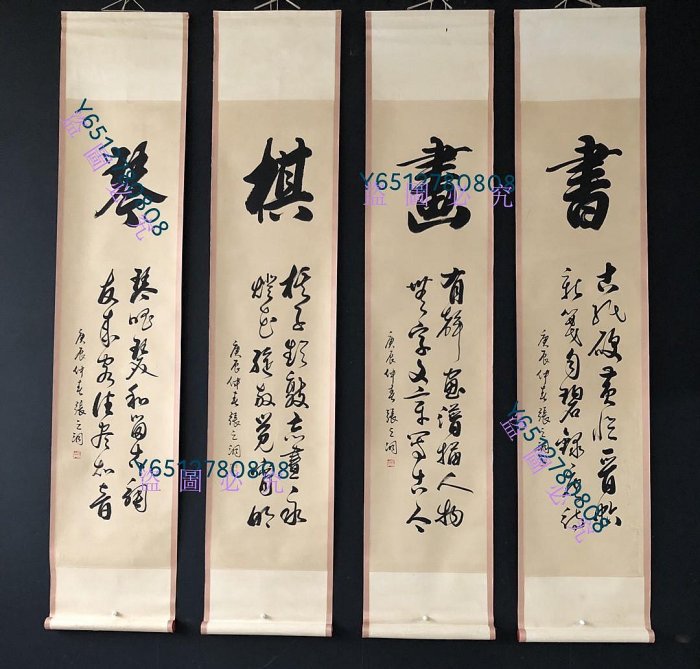 琴
琴瑟和留古調
友來客往盡知音
庚辰仲春張之洞
棋
棋子頻敲忘晝永
燈花放覺宵明
庚辰仲春張之洞
畫
有聲畫譜描人物
無字文章寫古今
庚辰仲春張之洞
書
古紙硬黃臨晉帖
新箋勻碧錄唐詩
庚辰仲春張之洞
Y6512780808
盜圖必究
Y6512780808
盜圖必究
Y6512780808
盜圖必究
Y6512780808
盜圖必究